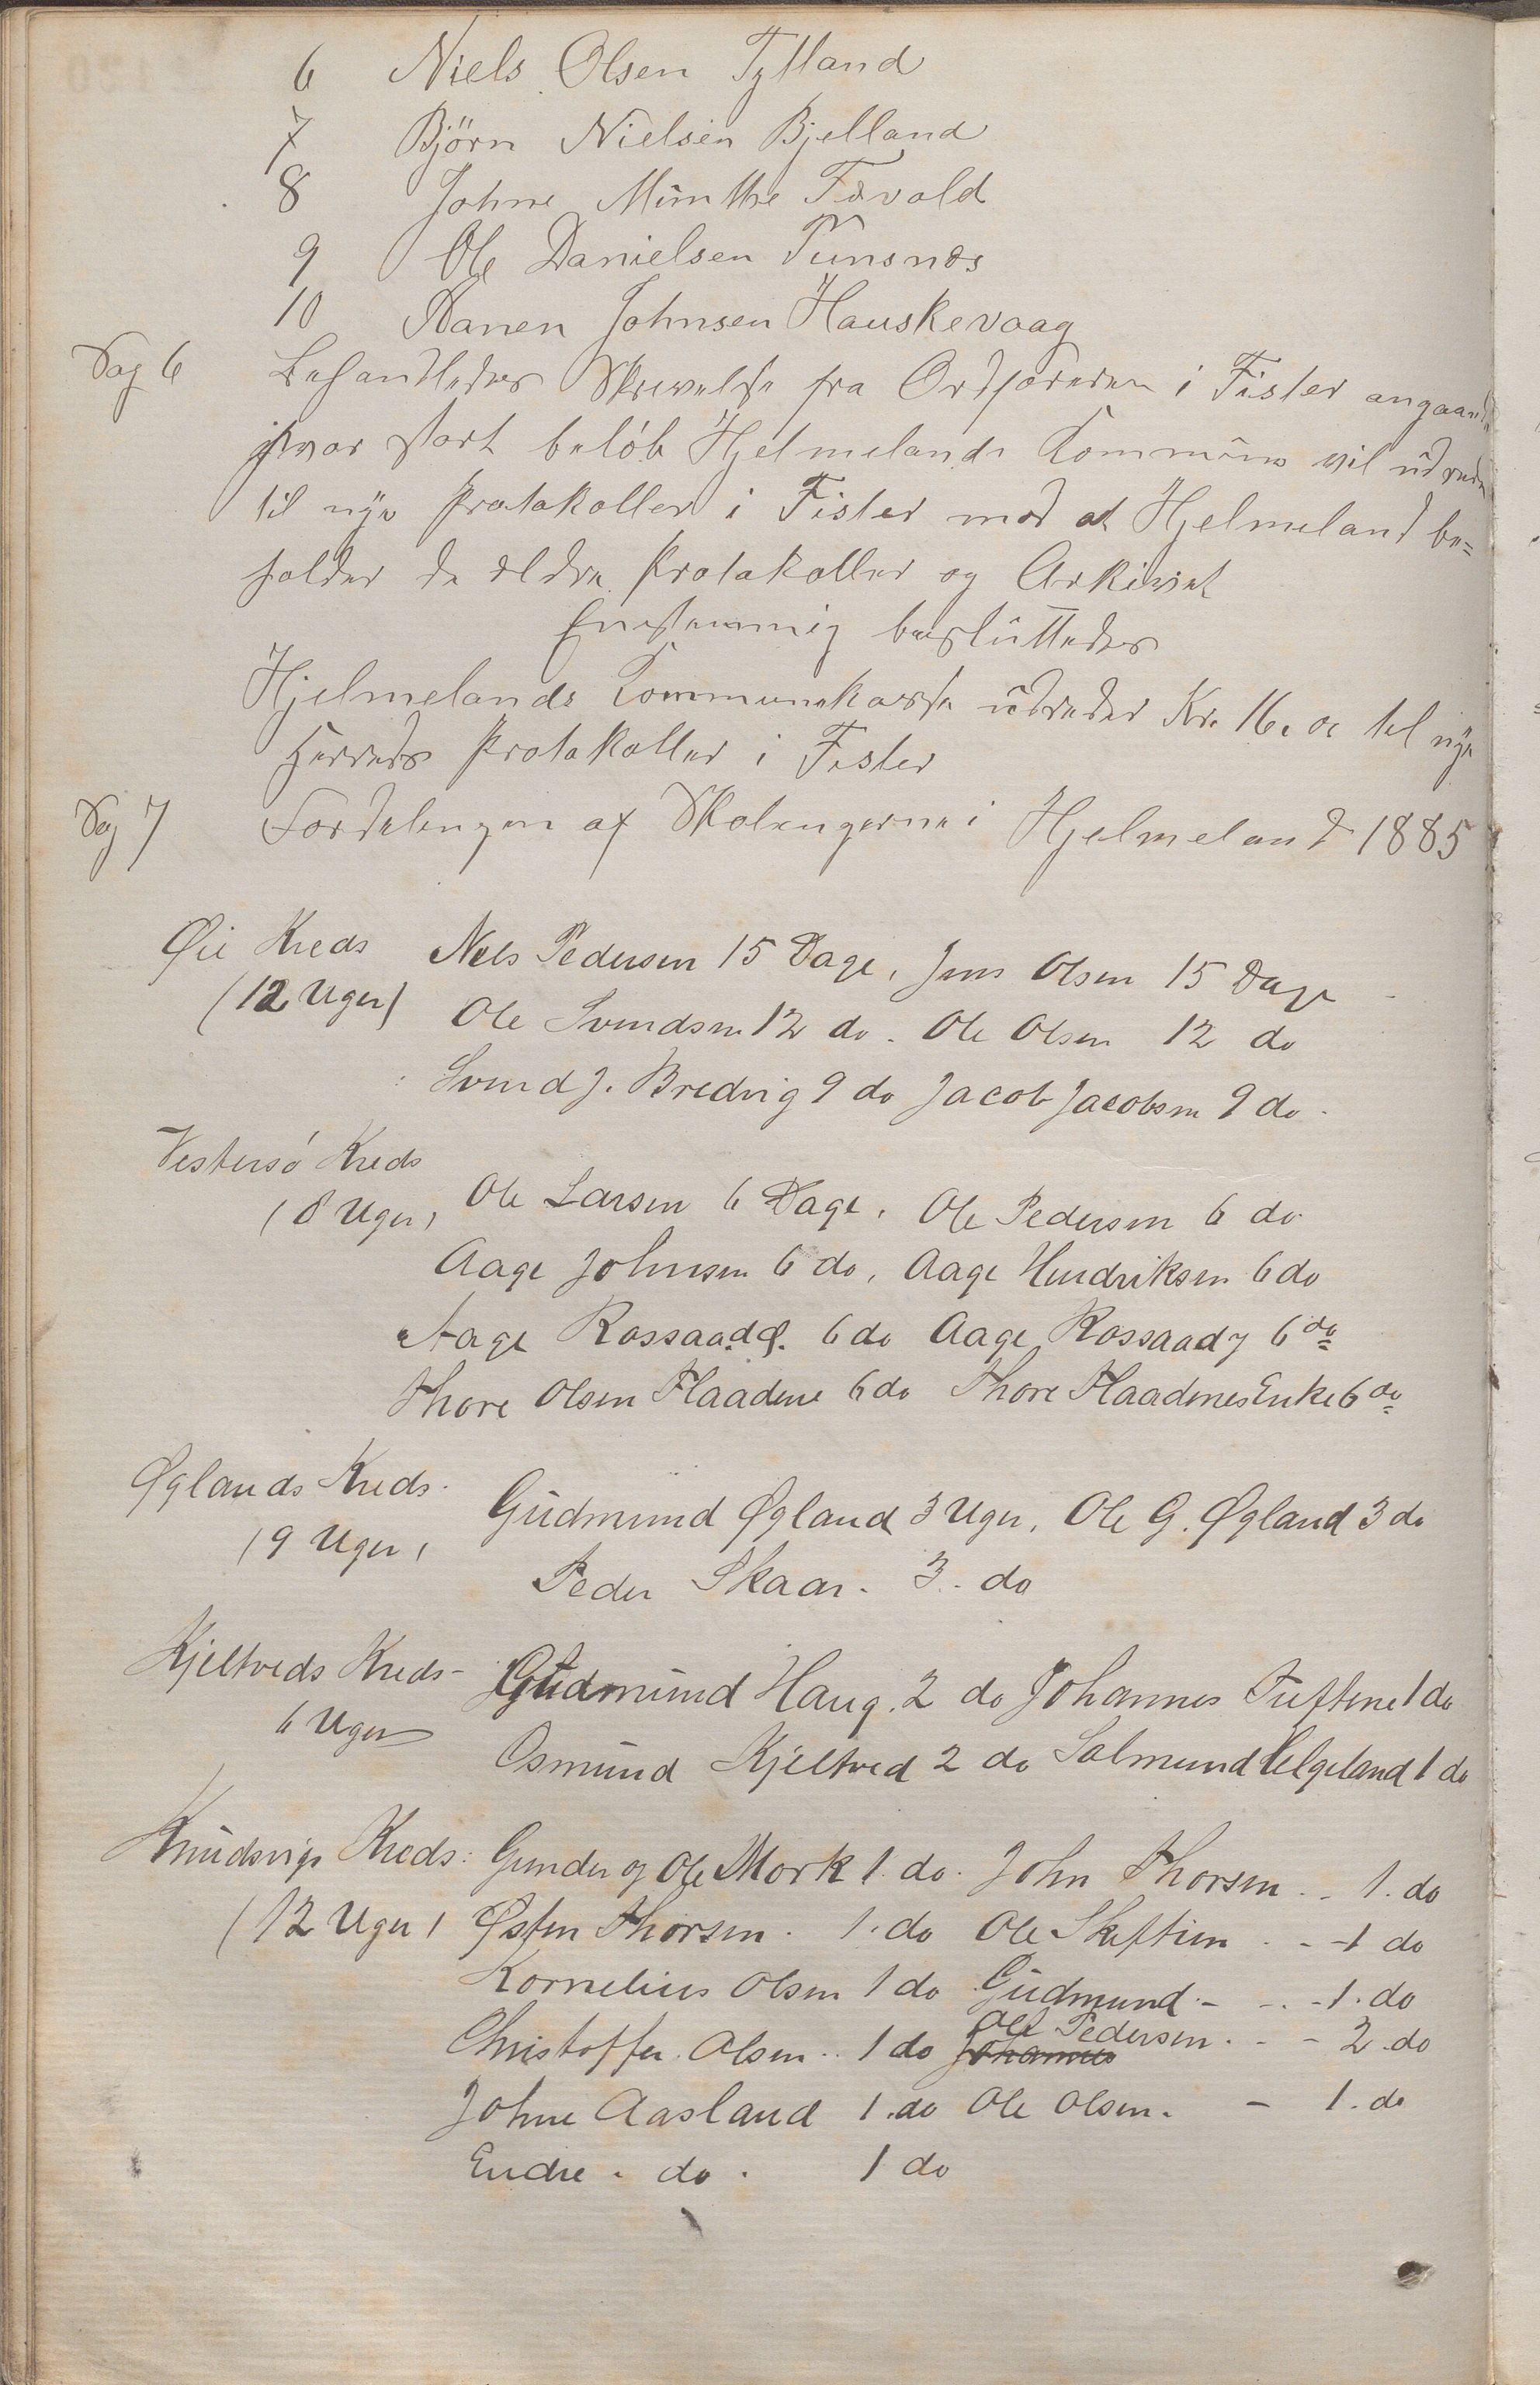 6 Niels Olsen Tytland
7 Björn Nielsen Bjelland
8 Johne Munthe Fævold
9 Ole Danielsen Tunsnæs
10 Aanen Johnsen Hauskevaag
Sag 6 Behandledes Skrivelse fra Ordføreren i Fister angaaende
hvor stort beløb Hjelmelands Kommune vil udrede
til nye Protokoller i Fister mod at Hjelmeland be=
holder de ældre Protokoller og Arkivet
Enstemmig besluttedes
Hjelmelands Kommunekasse udreder Kr. 16.00 til nye
Herreds Protokoller i Fister
Sag 7 Fordelingen af Skolengerne i Hjelmeland 1885
Øie Kreds Nels Pedersen 15 Dage, Jens Olsen 15 Dage
(12 Uger) Ole Svendsen 12 do. Ole Olsen 12 do
Svend J. Bredvig 9 do Jacob Jacobsen 9 do.
Vestersö Kreds
(8 Uger) Ole Larsen 6 Dage, Ole Pedersen 6 do
Aage Johnsen 6 do, Aage Hendriksen 6 do
Aage Rossaadø. 6 do Aage Rossaady 6 do
Thore Olsen Flaadene 6 do Thore Flaadenes Enke 6 do
Øglands Kreds. Gudmund Øgland 3 Uger, Ole G. Øgland 3 do
(9 Uger) Peder Skaar. 3. do
Kjeltveds Kreds- Gudmund Haug. 2 do Johannes Tuftene 1 do
6 Uger Osmund Kjeltved 2 do Salmund Helgeland 1 do
Knudsvigs Kreds: Gunder og Ole Mork 1. do. John Thorsen .. 1. do
(12 Uger) Østen Thorsen. 1. do Ole Skiftun . - 1 do
Kornelius Olsen 1 do Gudmund - . . - 1. do
Christoffer Olsen .. 1 do Johannes Ole Pedersen . - - 2. do
Johne Aasland 1. do Ole Olsen. - 1. do
Endre . do . 1 do